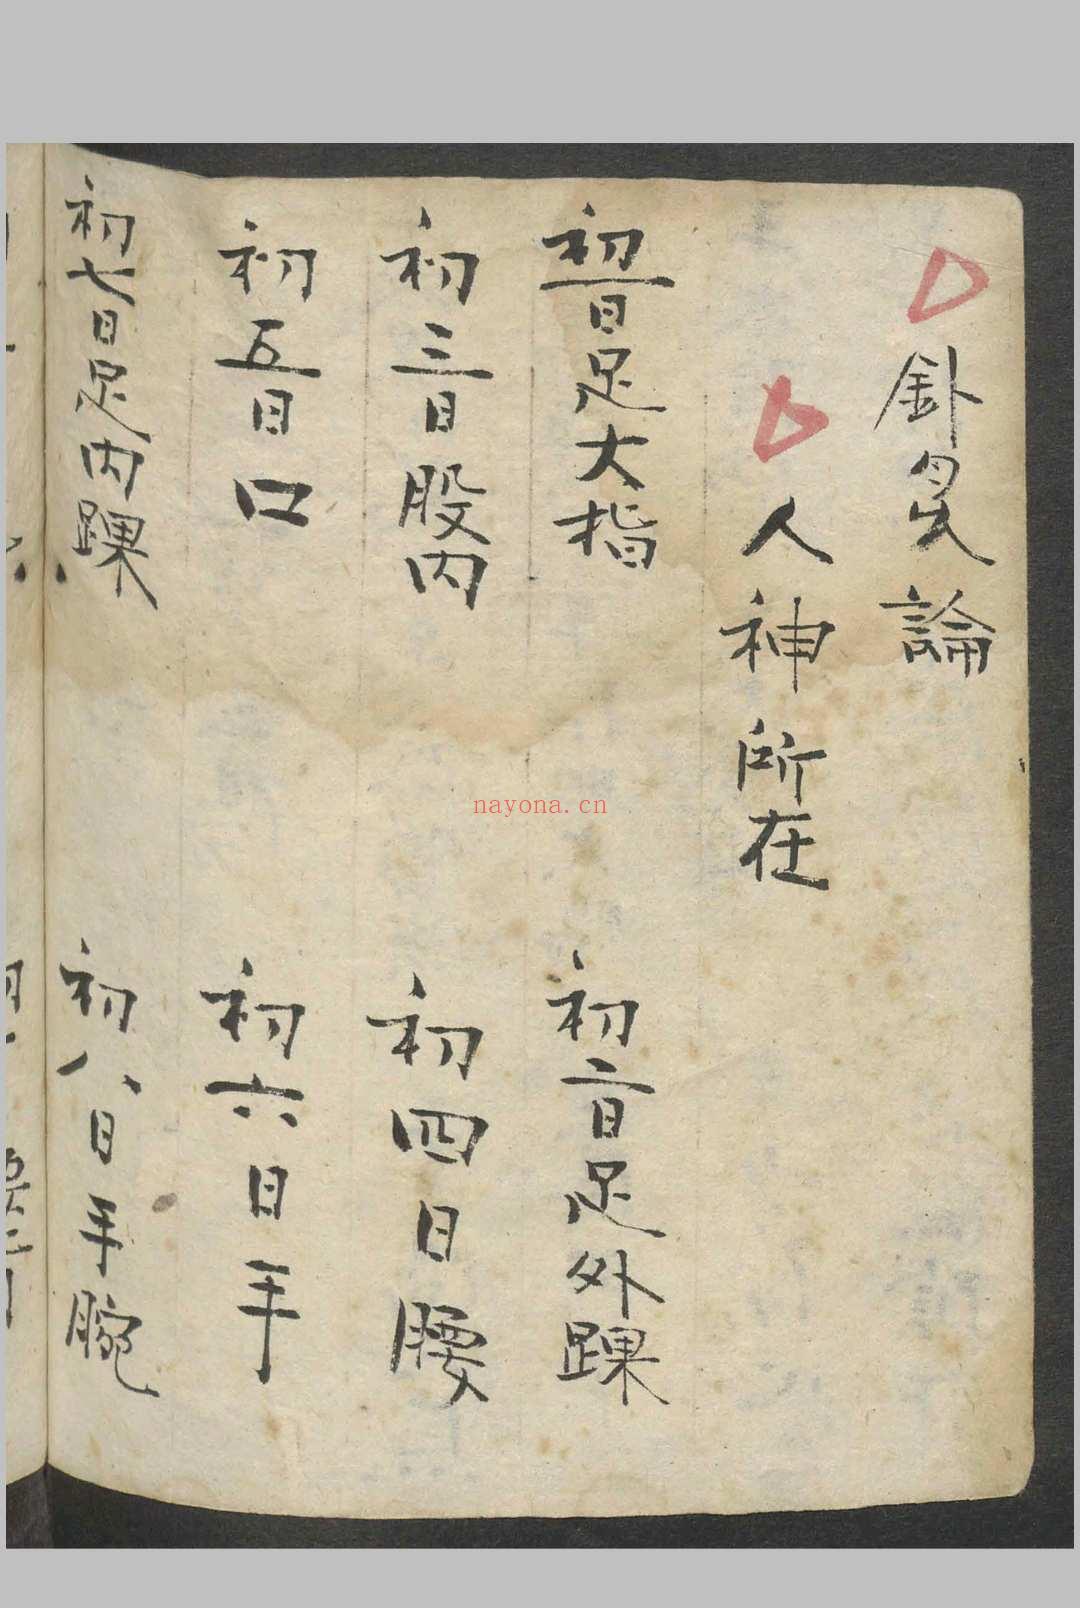 針灸論
人神所在
初一日足大指
初二日足外踝
初三日股内
初四日腰
初五日口
初六日手
初七日足内踝
初八日手腕
nayona.cn